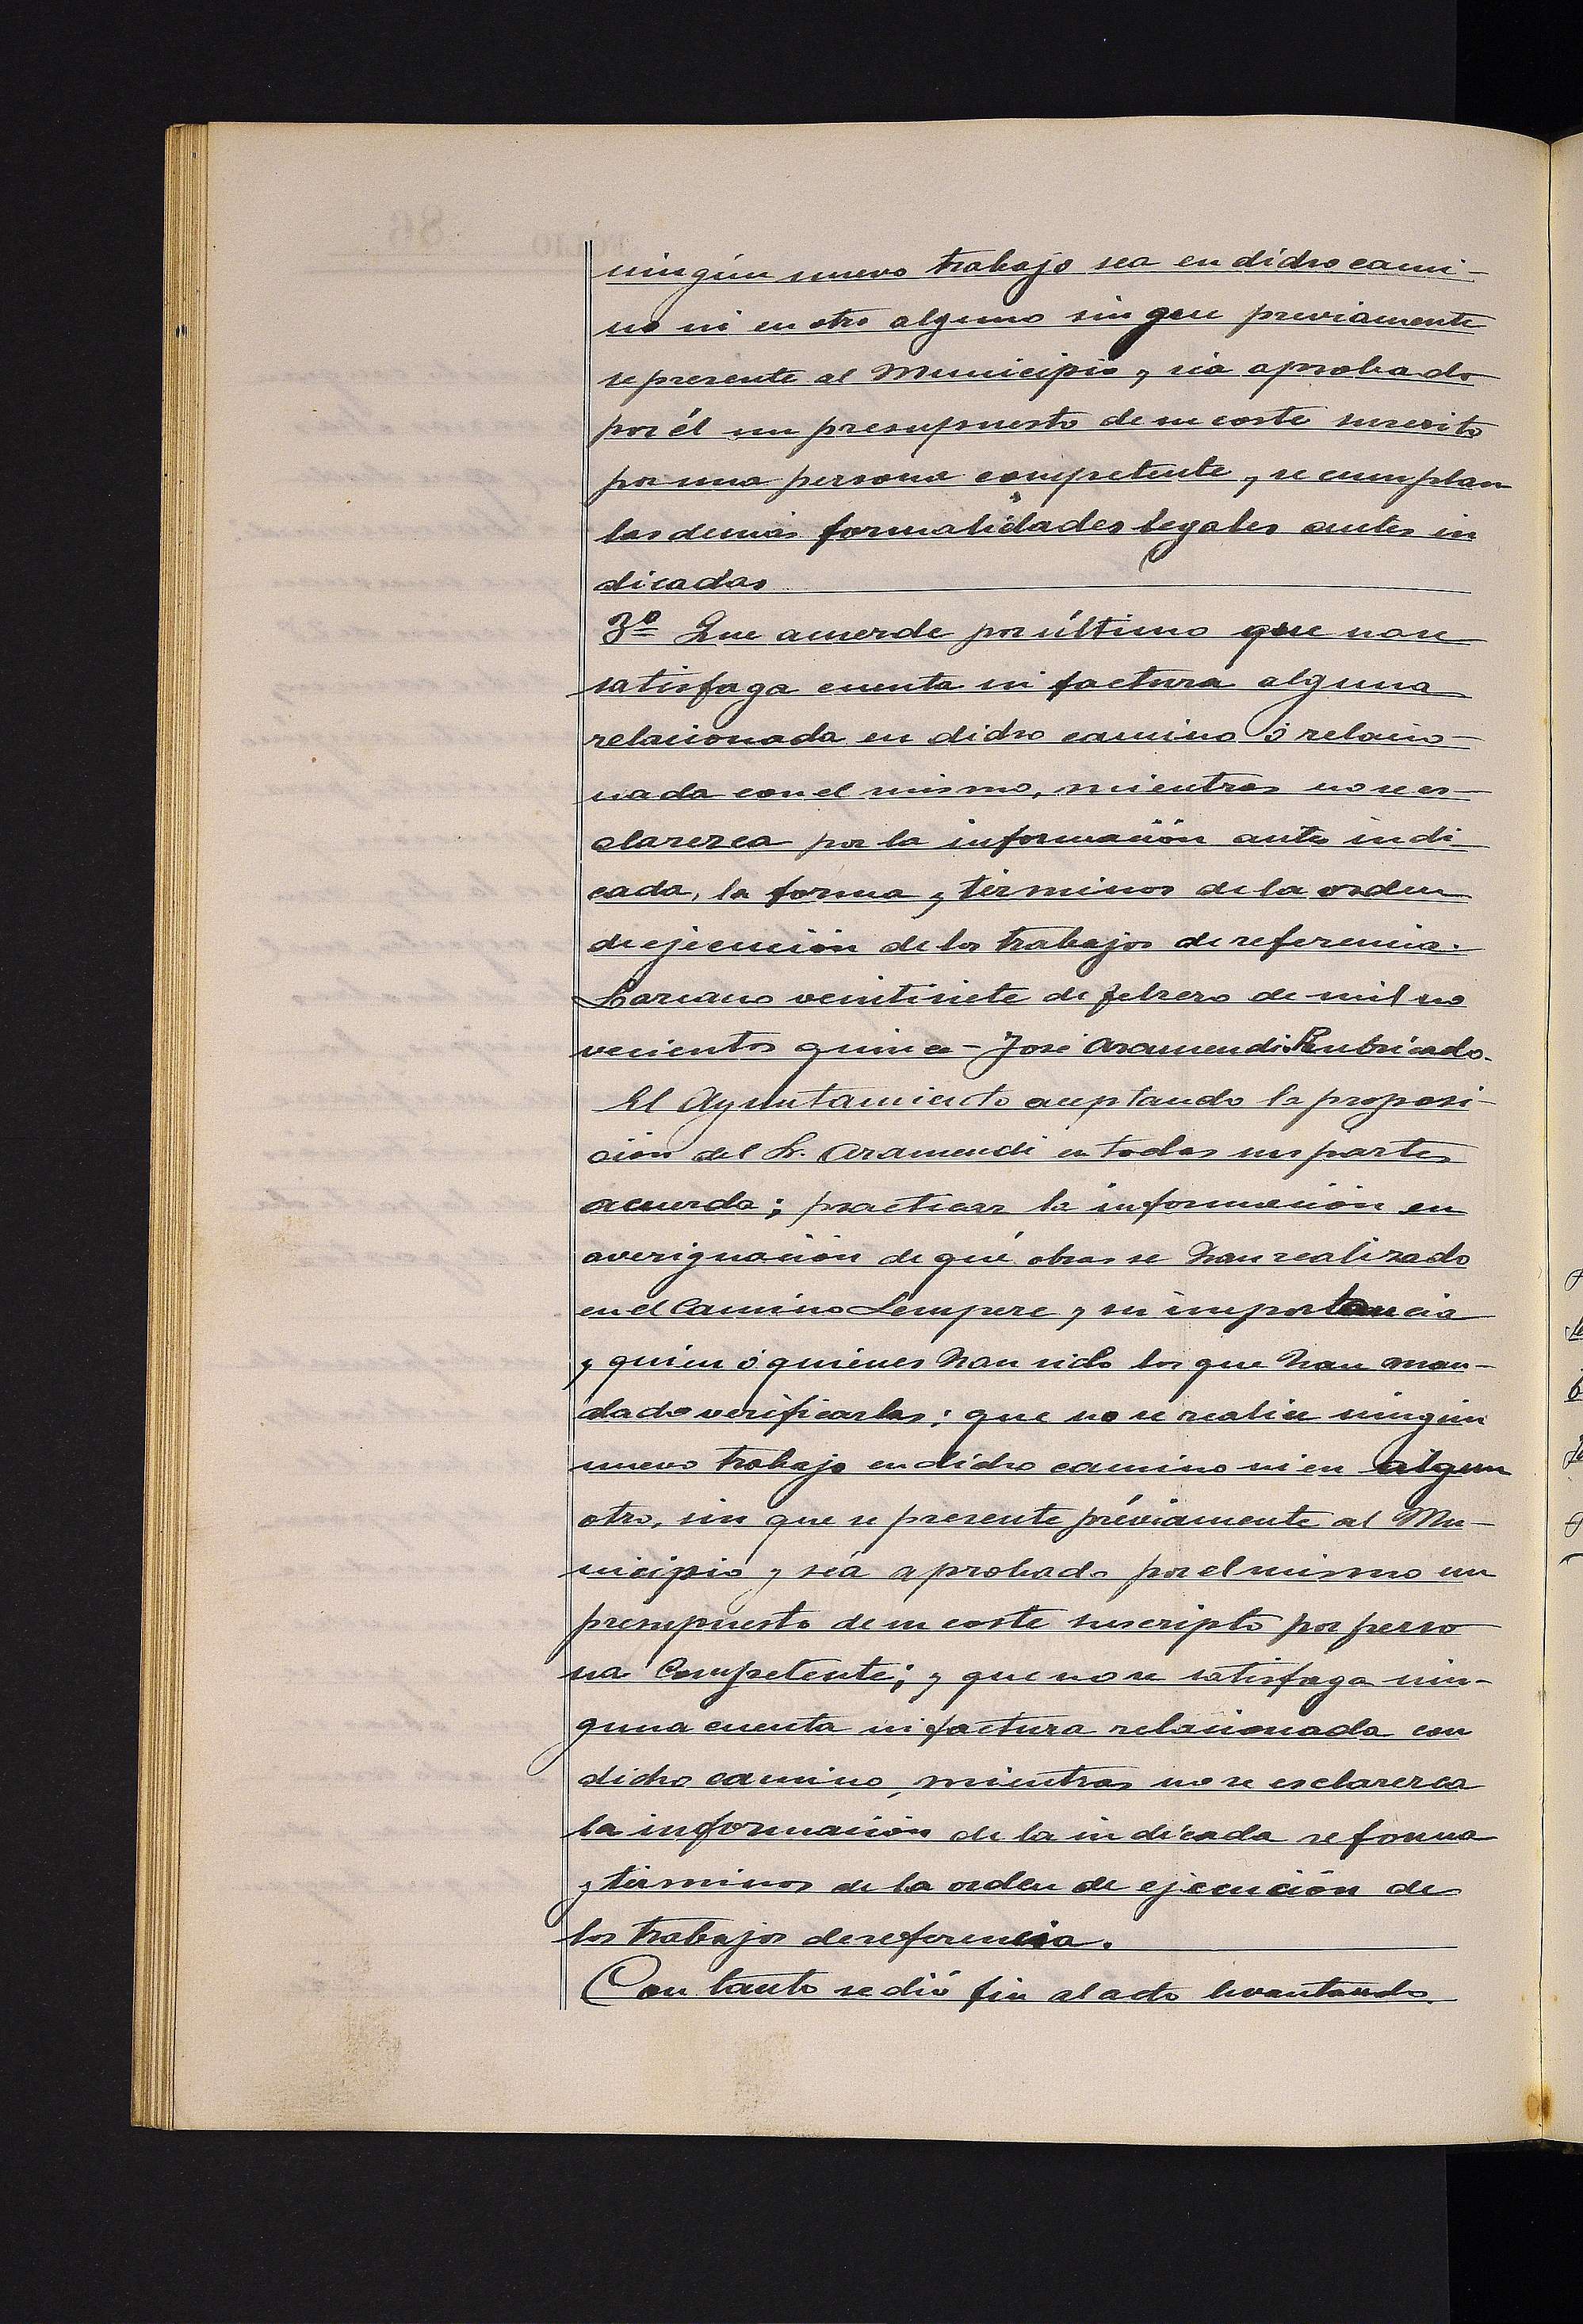 ningún nuevo trabajo sea en dicho cami-
no ni en otro alguno sin que previamente
se presente al Municipio y sea aprobado
por él un presupuesto de su coste suscrito
por una persona competente, y se cumplan
las demás formalidades legales antes in
dicadas
3º Que acuerde por último que no se
satisfaga cuenta ni factura alguna
relacionada en dicho camino ó relacio-
nada con el mismo, mientras no se es-
clarezca por la información antes indi-
cada, la forma y términos de la orden
de ejecución de los trabajos de referencia.
Lazcano veintisiete de febrero de mil no
vecientos quince - José Aramendi. Rubricado.
El Ayuntamiento aceptando la proposi-
ción del Sr. Aramendi en todas sus partes
acuerda; practicar la información en
averiguación de qué obras se han realizado
en el Camino Lempere y su importancia
y quien ó quienes han sido los que han man-
dado verificarlas; que no se realice ningún
nuevo trabajo en dicho camino ni en algun
otro, sin que se presente préviamente al Mu-
nicipio y sea aprobado por el mismo un
presupuesto de su coste suscripto por perso
na Competente; y que no se satisfaga nin-
guna cuenta ni factura relacionada con
dicho camino, mientras no se esclarezca
la información de la indicada reforma
y términos de la orden de ejecución de
los trabajos de referencia.
Con tanto se dió fin al acto levantando